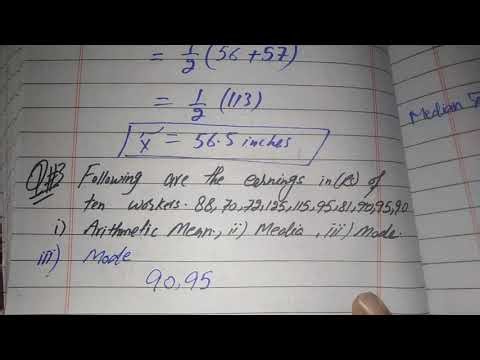 = 1/2 (56+57)
= 1/2 (113)
x̃ = 56.5 inches
Median
Q#3 Following are the earnings in (Rs) of
ten workers. 88,70,72,125,115,95,81,90,95,90
i) Arithmetic Mean, ii) Media, iii) Mode.
iii) Mode
90,95